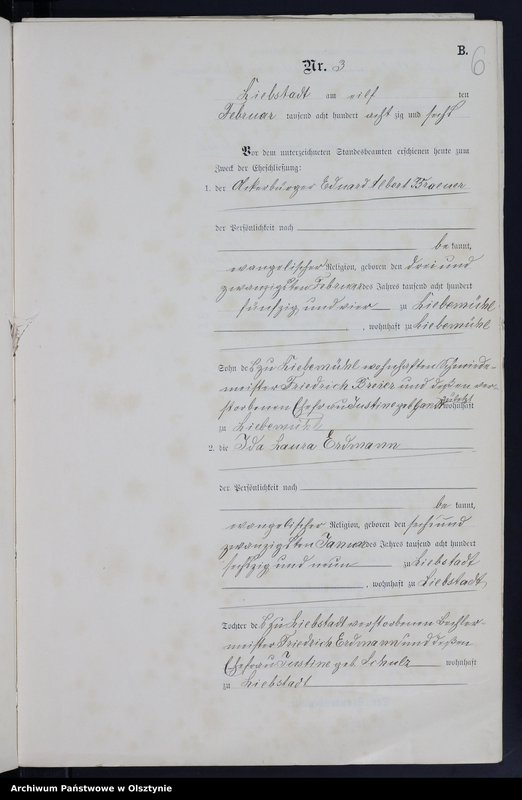 B.
6
Nr. 3
Liebstadt am eilf ten
Februar tausend acht hundert acht zig und sechs
Vor dem unterzeichneten Standesbeamten erschienen heute zum
Zweck der Eheschließung:
1. der Ackerbürger Eduard Albert
der Persönlichkeit nach
be kannt,
evangelischer Religion, geboren den drei und
zwanzigsten Februar des Jahres tausend acht hundert
fünfzig und vier zu Liebemühl
, wohnhaft zu Liebemühl
Sohn des zu Liebemühl wohnhaften Schmiede-
meister Friedrich und dessen ver-
storbenen Ehefrau Justine geb. zuletzt wohnhaft
zu Liebemühl
2. die Ida Laura Erdmann
der Persönlichkeit nach
be kannt,
evangelischer Religion, geboren den sechs und
zwanzigsten Januar des Jahres tausend acht hundert
sechszig und neun zu Liebstadt
, wohnhaft zu Liebstadt
Tochter des zu Liebstadt verstorbenen
meister Friedrich Erdmann und dessen
Ehefrau Justine geb. Schulz wohnhaft
zu Liebstadt
Archiwum Państwowe w Olsztynie